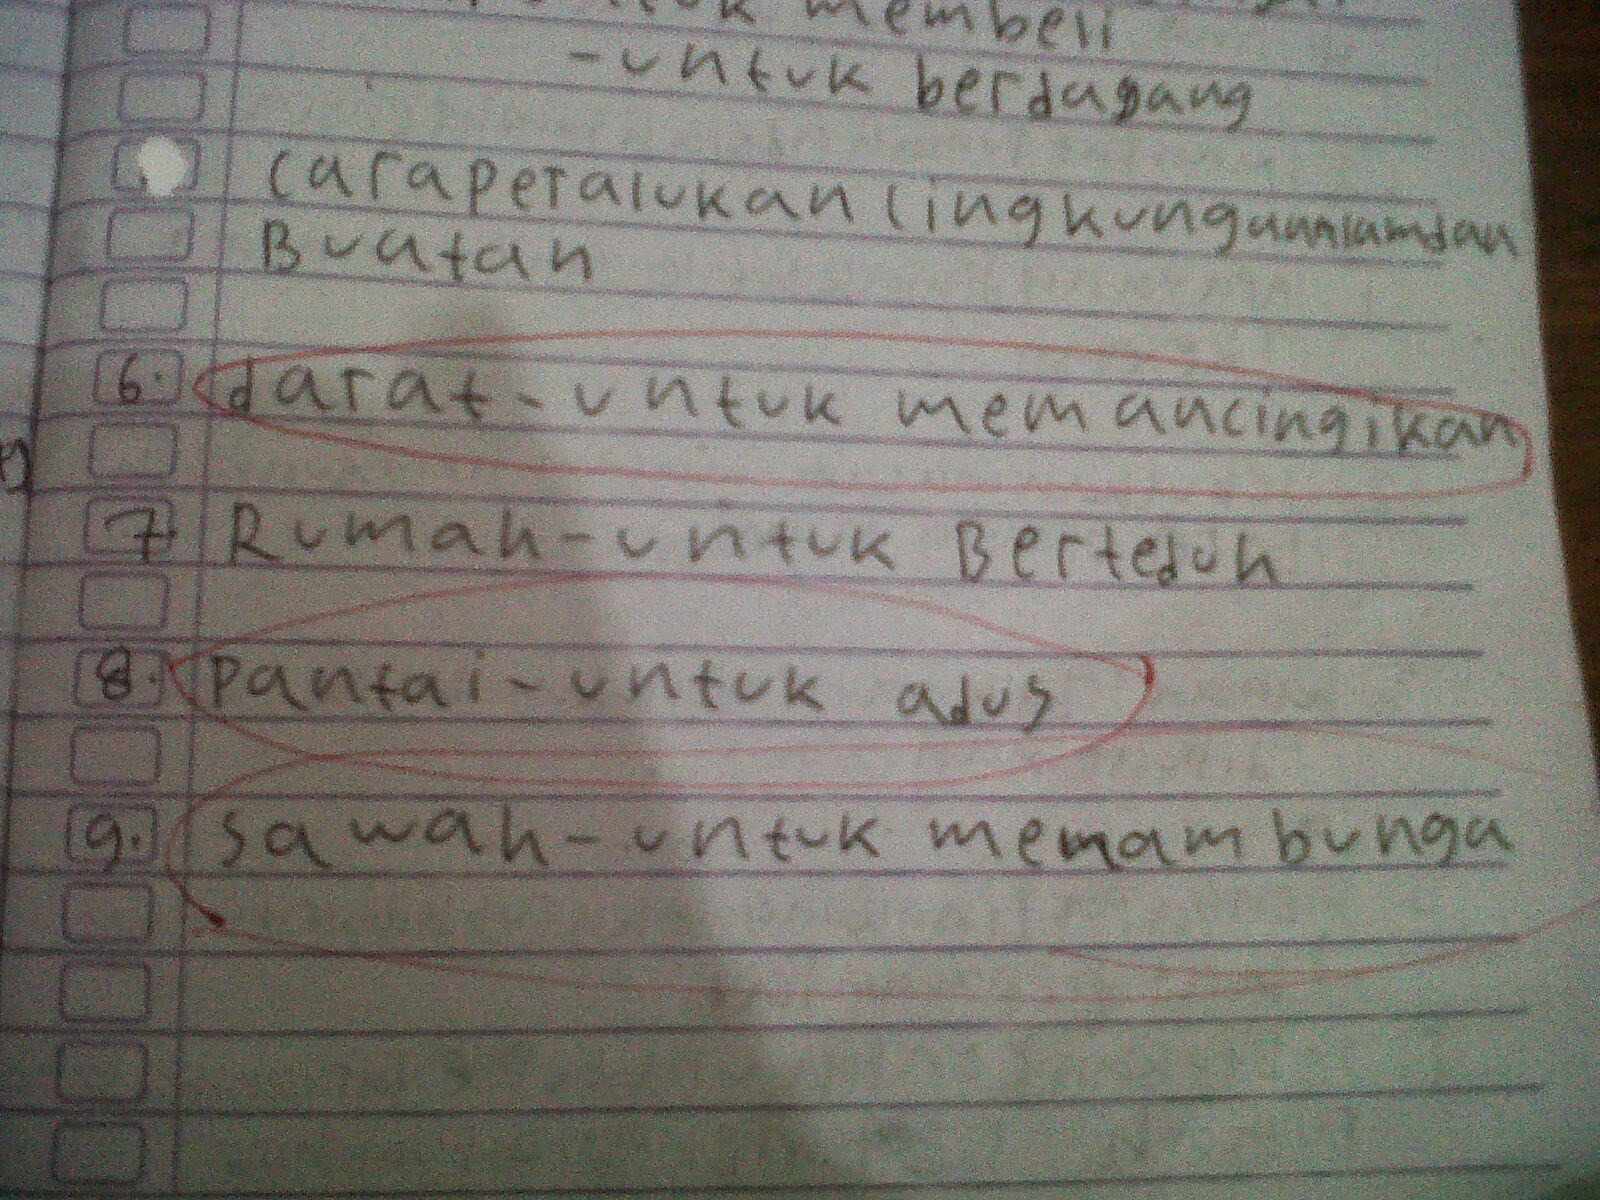 untuk membeli
- untuk berdagang
caraperalukan lingkunganalamdan
Buatan
6. darat - untuk memancingikan
7. Rumah - untuk Berteduh
8. pantai - untuk adus
9. sawah - untuk menambunga